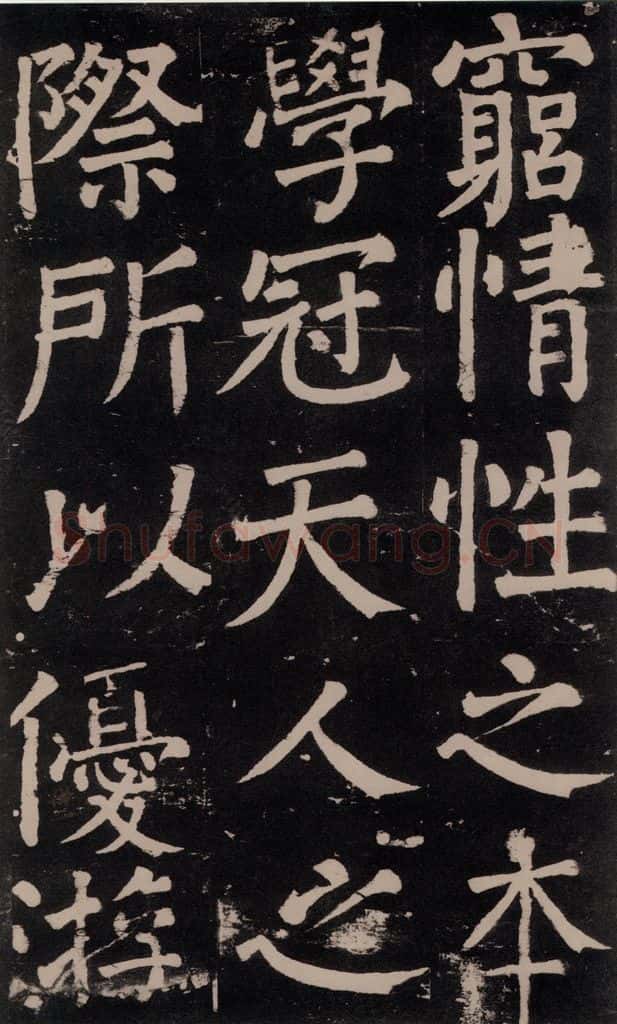 窮情性之本
學冠天人之
際所以優游
Shufawang.CN